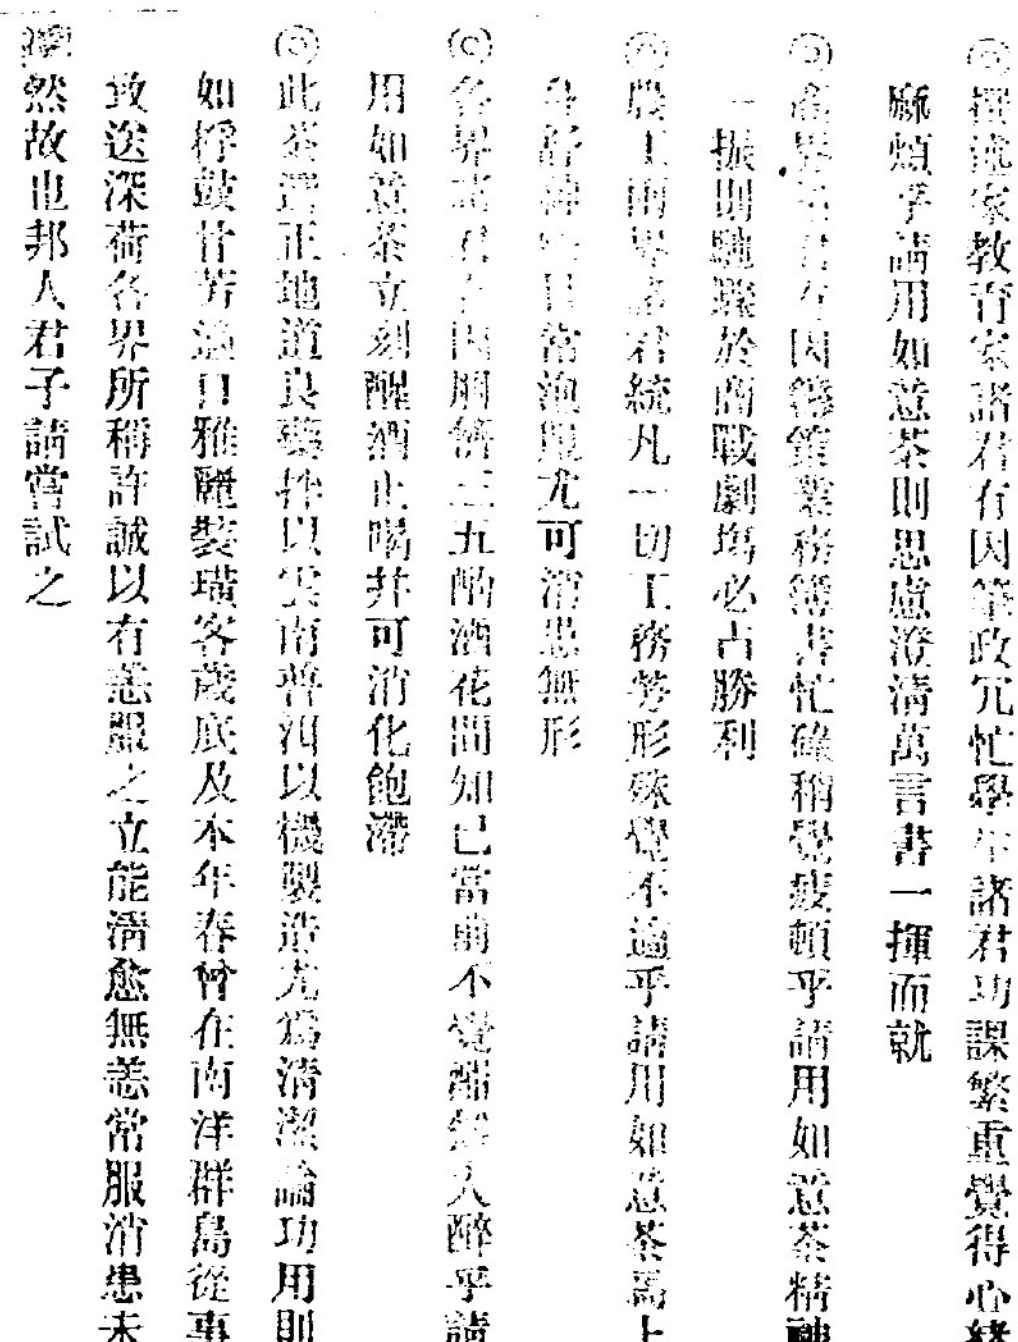 ◎撰述家教育家諸君有因筆政冗忙學生諸君功課繁重覺得心緒
麻煩乎請用如意茶則思慮澄清萬言書一揮而就
◎商界諸君有因籌策業務簿書忙碌稍覺疲頓乎請用如意茶精神
一振則馳騁於商戰劇場必占勝利
◎農工兩界諸君統凡一切工務勞形殊覺不適乎請用如意茶馬上
身舒神 日常泡服尤可消患無形
◎各界諸君有因朋儕三五酌酒花間知己當前不覺醺然入醉乎請
用如意茶立刻醒酒止喝并可消化飽滯
◎此茶選正地道良藥拌以雲南普洱以機製造尤為清潔論功用則
如桴鼓甘芳適口雅麗裝璜客歲底及本年春曾在南洋群島從事
致送深荷各界所稱許誠以有恙服之立能清愈無恙常服消患未
然故也邦人君子請嘗試之